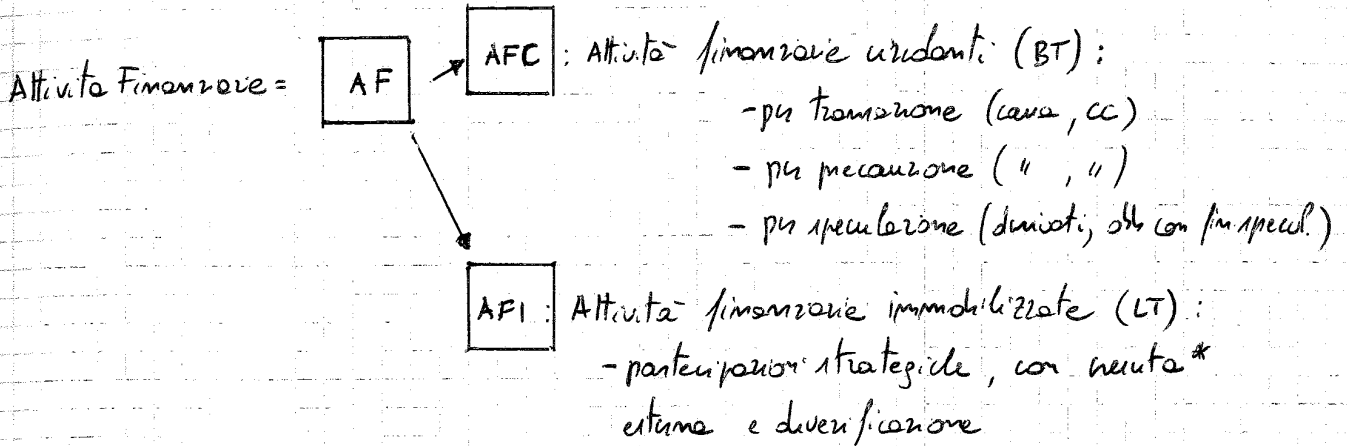 Attività Finanziarie = AF
AFC : Attività finanziarie circolanti (BT) :
- per transazione (cassa, CC)
- per precauzione ( " , " )
- per speculazione (derivati, obb con fin specul.)
AFI : Attività finanziarie immobilizzate (LT) :
- partecipazioni strategiche, con crescita *
esterna e diversificazione